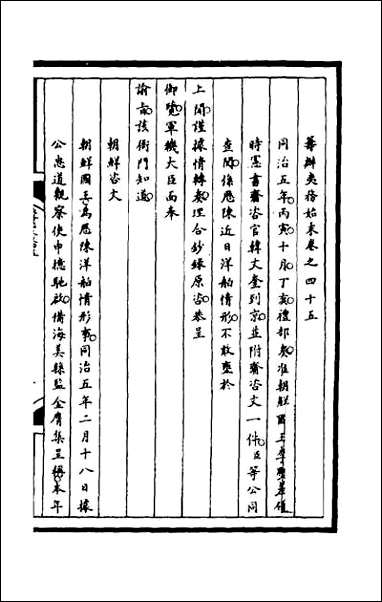 籌辦夷務始末卷之四十五
同治五年丙寅十月丁亥禮部奏准朝鮮國王
時憲書齎咨官韓文奎到京並附齎咨文一件臣等公同
查閱係歷陳近日洋舶情形不敢壅於
上聞謹據情轉奏理合鈔錄原咨恭呈
御覽軍機大臣面奉
諭旨該衙門知道
朝鮮咨文
朝鮮國王為歷陳洋舶情形事同治五年二月十八日據
公忠道觀察使申檍馳啟備海美縣監金膺集呈稱本年